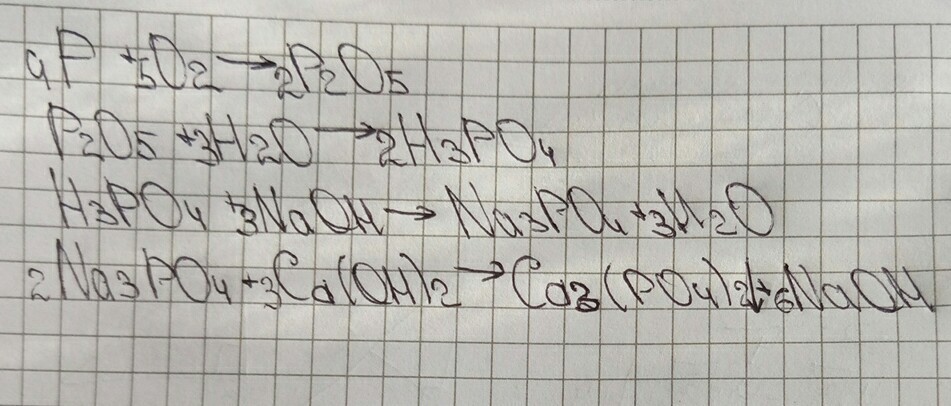 4P + 5O2 → 2P2O5
P2O5 + 3H2O → 2H3PO4
H3PO4 + 3NaOH → Na3PO4 + 3H2O
2Na3PO4 + 3Ca(OH)2 → Ca3(PO4)2↓ + 6NaOH